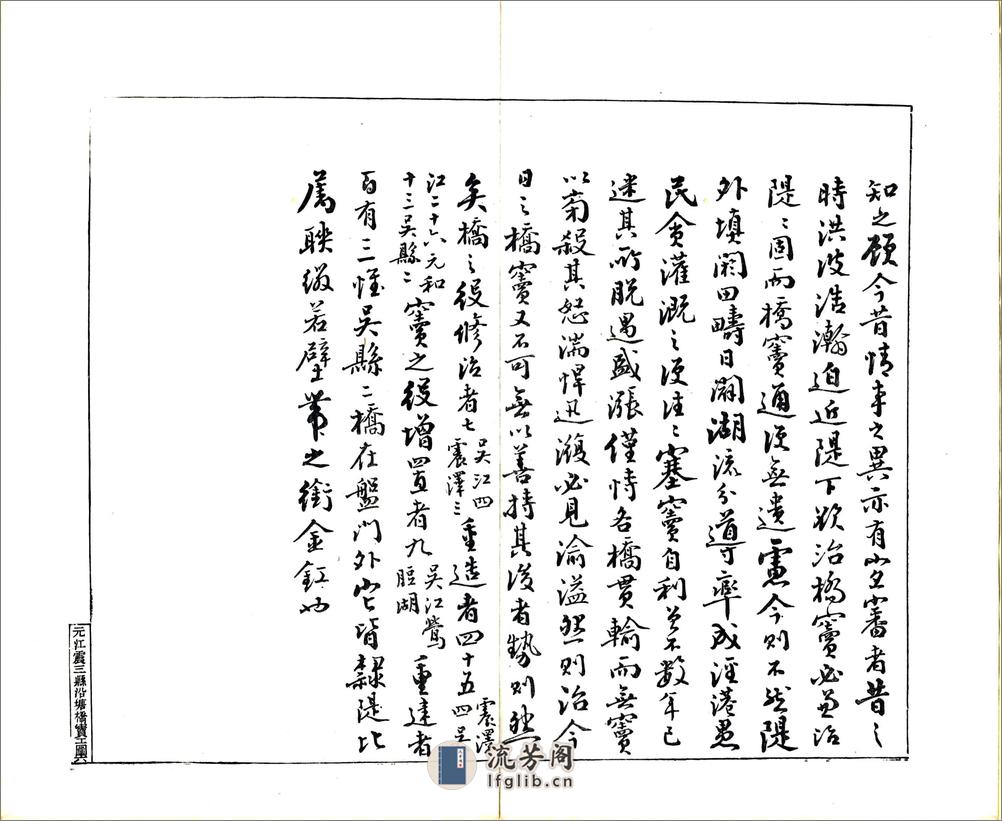 知之顧今昔情事之異亦有宜審者昔之
時洪波浩瀚迫近隄下欲治橋竇必兼治
隄隄固而橋竇通便無遺慮今則不然隄
外填閼田疇日闢湖流分導率成涇港愚
民貪灌溉之便往〻塞竇自利曾不數年已
迷其所脫遇盛漲僅恃各橋貫輸而無竇
以旁殺其怒湍悍迅澓必見渝溢然則治今
日之橋竇又不可無以善持其後者勢則然
矣橋之役修治者七吳江四震澤三重造者四十五震澤四吳
江二十六元和十三吳縣二竇之役增置者九吳江鶯脰湖重建者
百有三惟吳縣二橋在盤門外它皆隸隄比
屬聯綴若壁帶之銜金釭也
元江震三縣沿塘橋竇工圖
流芳阁
lfglib.cn